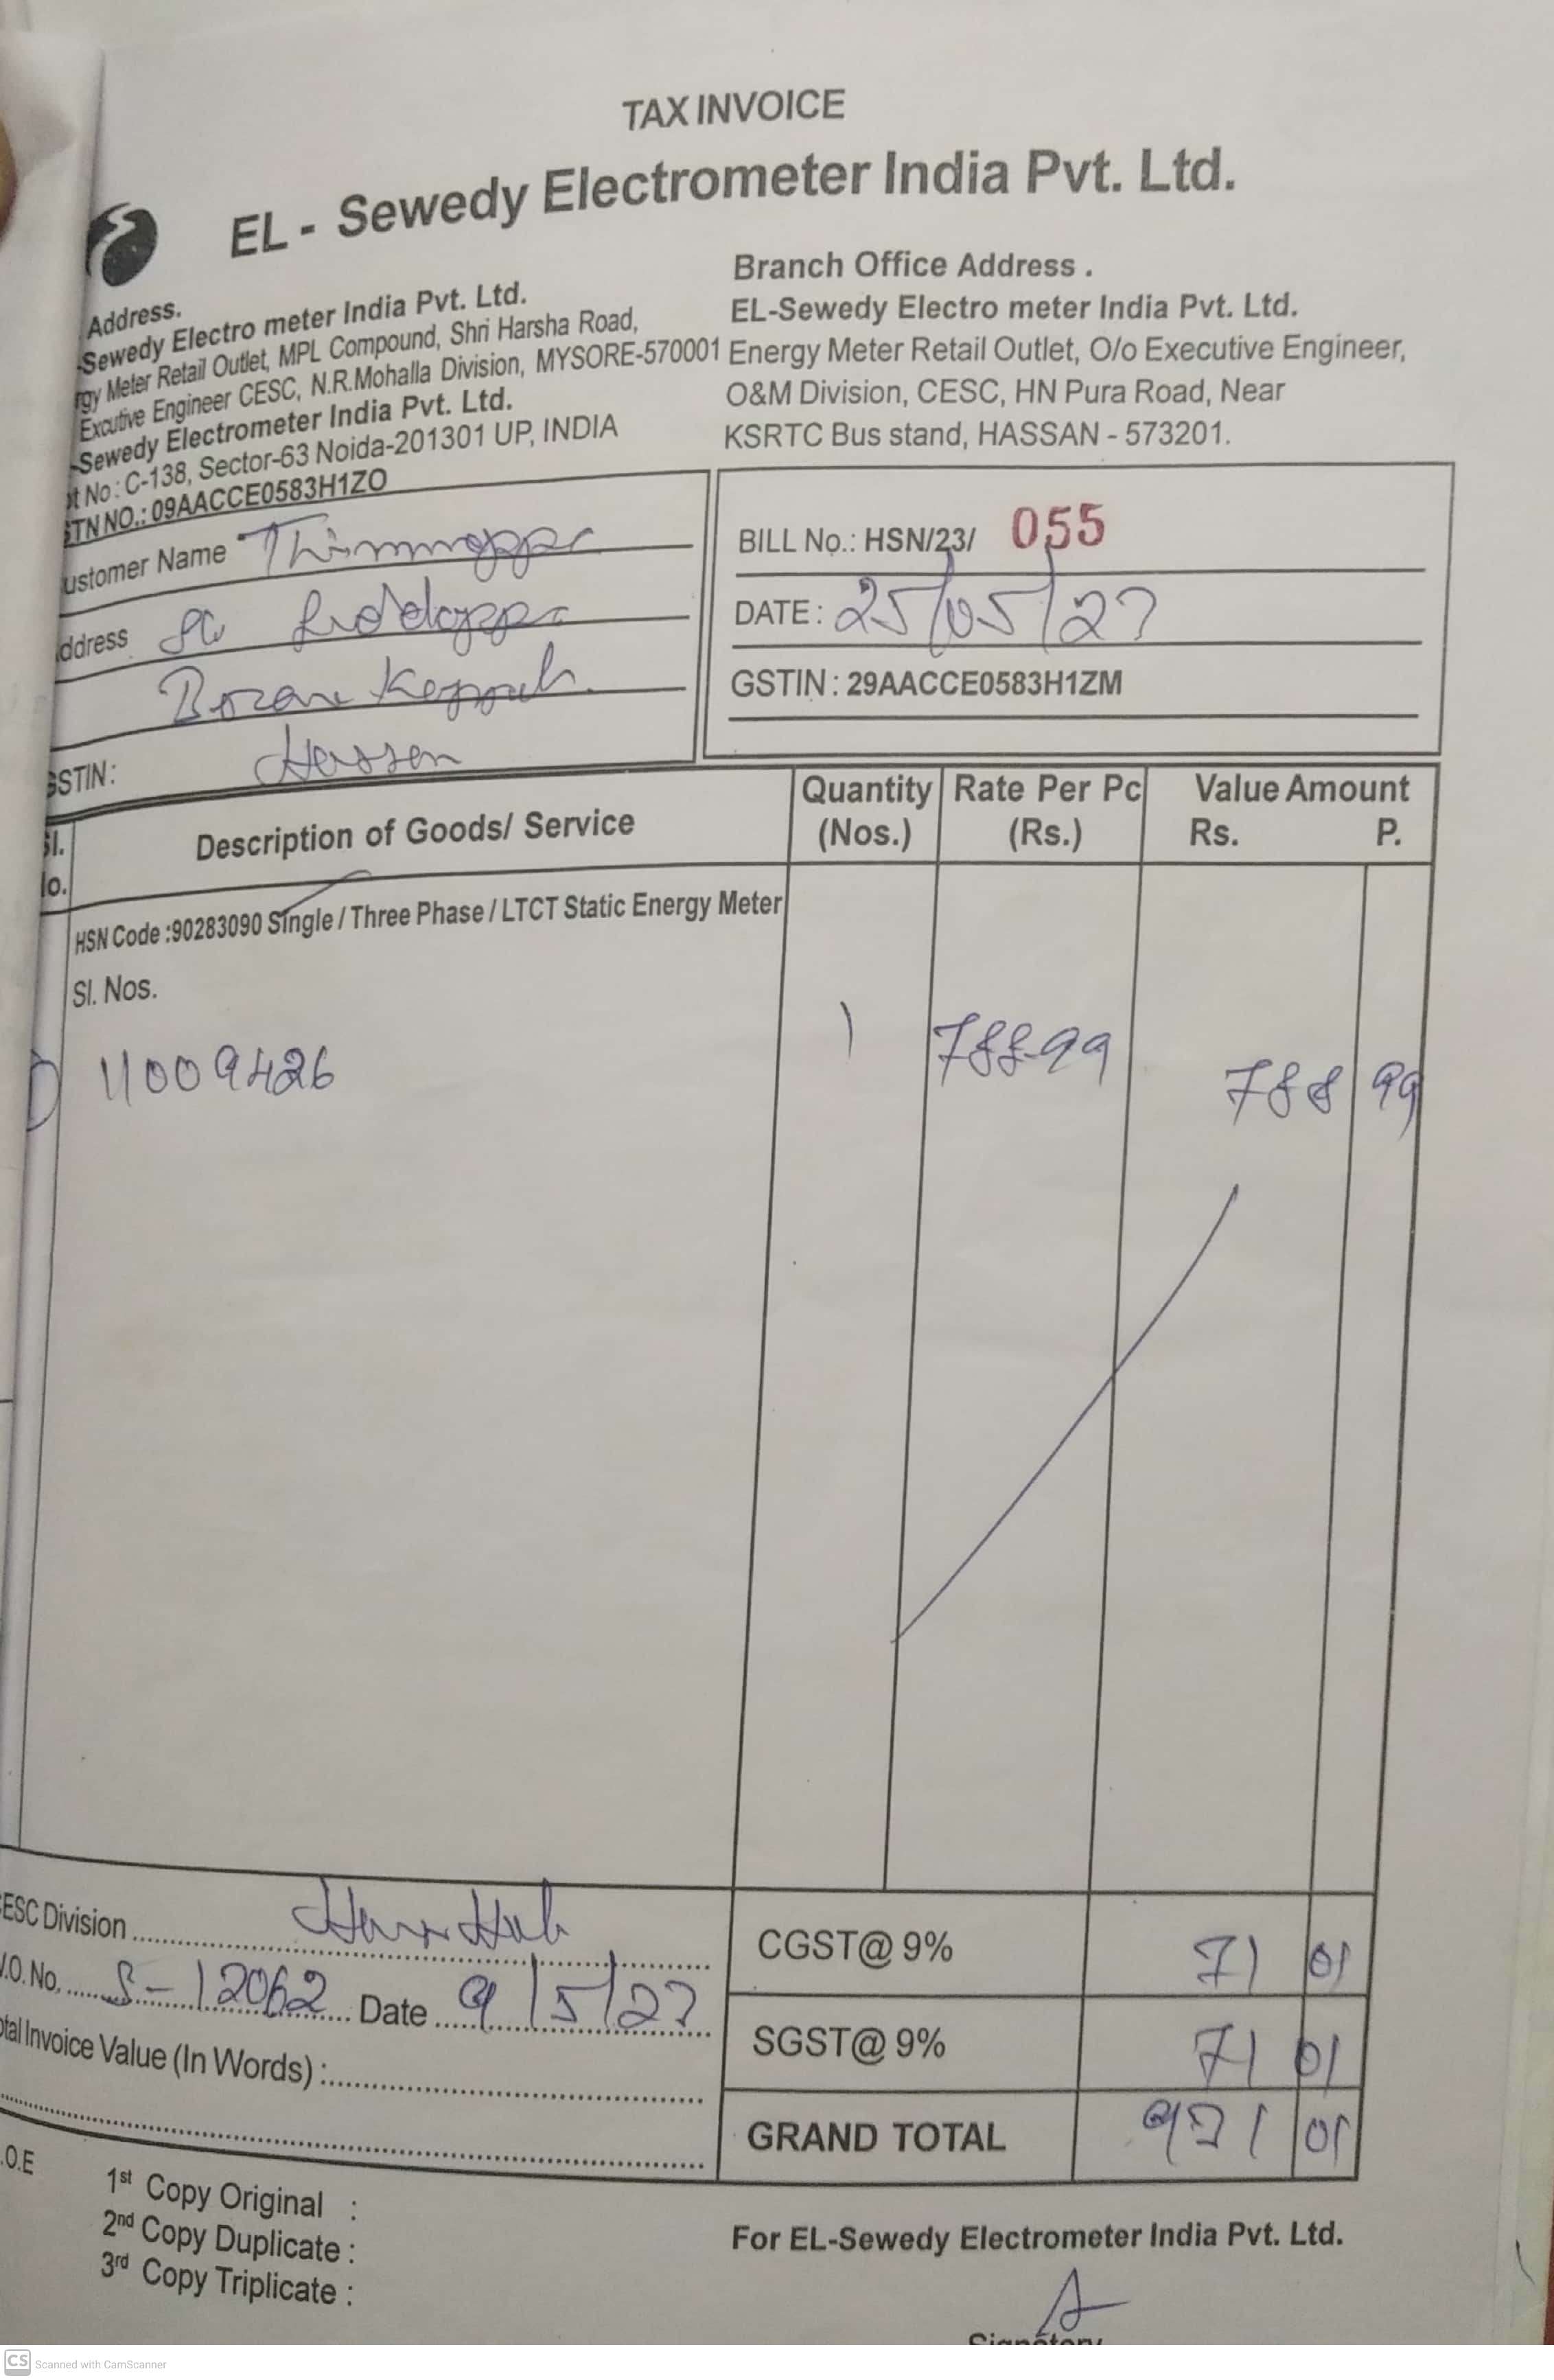 TAX INVOICE
EL - Sewedy Electrometer India Pvt. Ltd.
Address.
-Sewedy Electro meter India Pvt. Ltd.
rgy Meter Retail Outlet, MPL Compound, Shri Harsha Road,
Excutive Engineer CESC, N.R.Mohalla Division, MYSORE-570001
-Sewedy Electrometer India Pvt. Ltd.
ot No : C-138, Sector-63 Noida-201301 UP, INDIA
STN NO.: 09AACCE0583H1ZO
Branch Office Address .
EL-Sewedy Electro meter India Pvt. Ltd.
Energy Meter Retail Outlet, O/o Executive Engineer,
O&M Division, CESC, HN Pura Road, Near
KSRTC Bus stand, HASSAN - 573201.
ustomer Name Thimmappa
ddress
Hassan
GSTIN :
BILL No.: HSN/23/ 055
DATE : 25/05/23
GSTIN : 29AACCE0583H1ZM
Sl. No. Description of Goods/ Service Quantity (Nos.) Rate Per Pc (Rs.) Value Amount Rs. P.
HSN Code :90283090 Single / Three Phase / LTCT Static Energy Meter
Sl. Nos.
11009426 1 788-99 788 99
CESC Division
W.O. No. S-12062 Date 9/5/23
otal Invoice Value (In Words) :
CGST@ 9% 71 01
SGST@ 9% 71 01
GRAND TOTAL 931 01
.O.E
1st Copy Original :
2nd Copy Duplicate :
3rd Copy Triplicate :
For EL-Sewedy Electrometer India Pvt. Ltd.
Signatory
CS Scanned with CamScanner